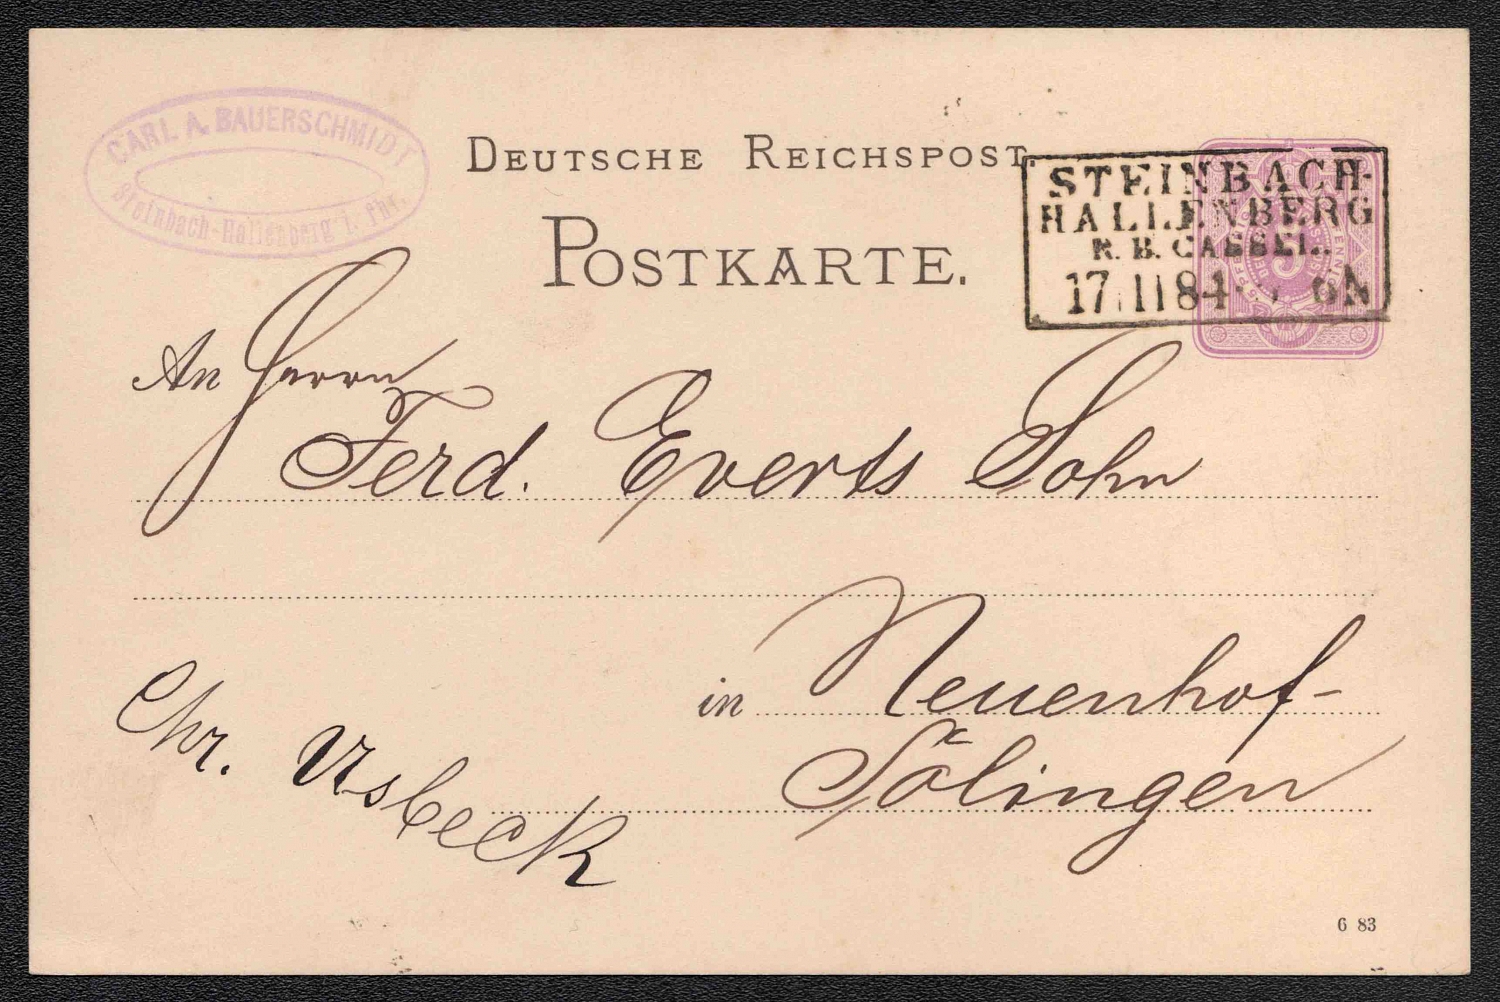 CARL A. BAUERSCHMIDT
Steinbach-Hallenberg i. Thr.
DEUTSCHE REICHSPOST.
POSTKARTE.
STEINBACH-
HALLENBERG
R. B. CASSEL.
17 11 84 6N
An Herrn
Ferd. Everts Sohn
in Neuenhof-
Sölingen
Chr. Usbeck
6 83